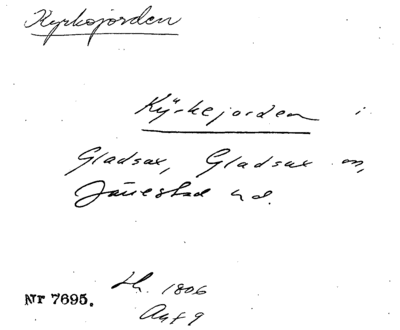 Kyrkojorden
Kyrkejorden i
Gladsax, Gladsax sn,
Järrestad hd.
Lh. 1806
Nr 7695.
Akt 9